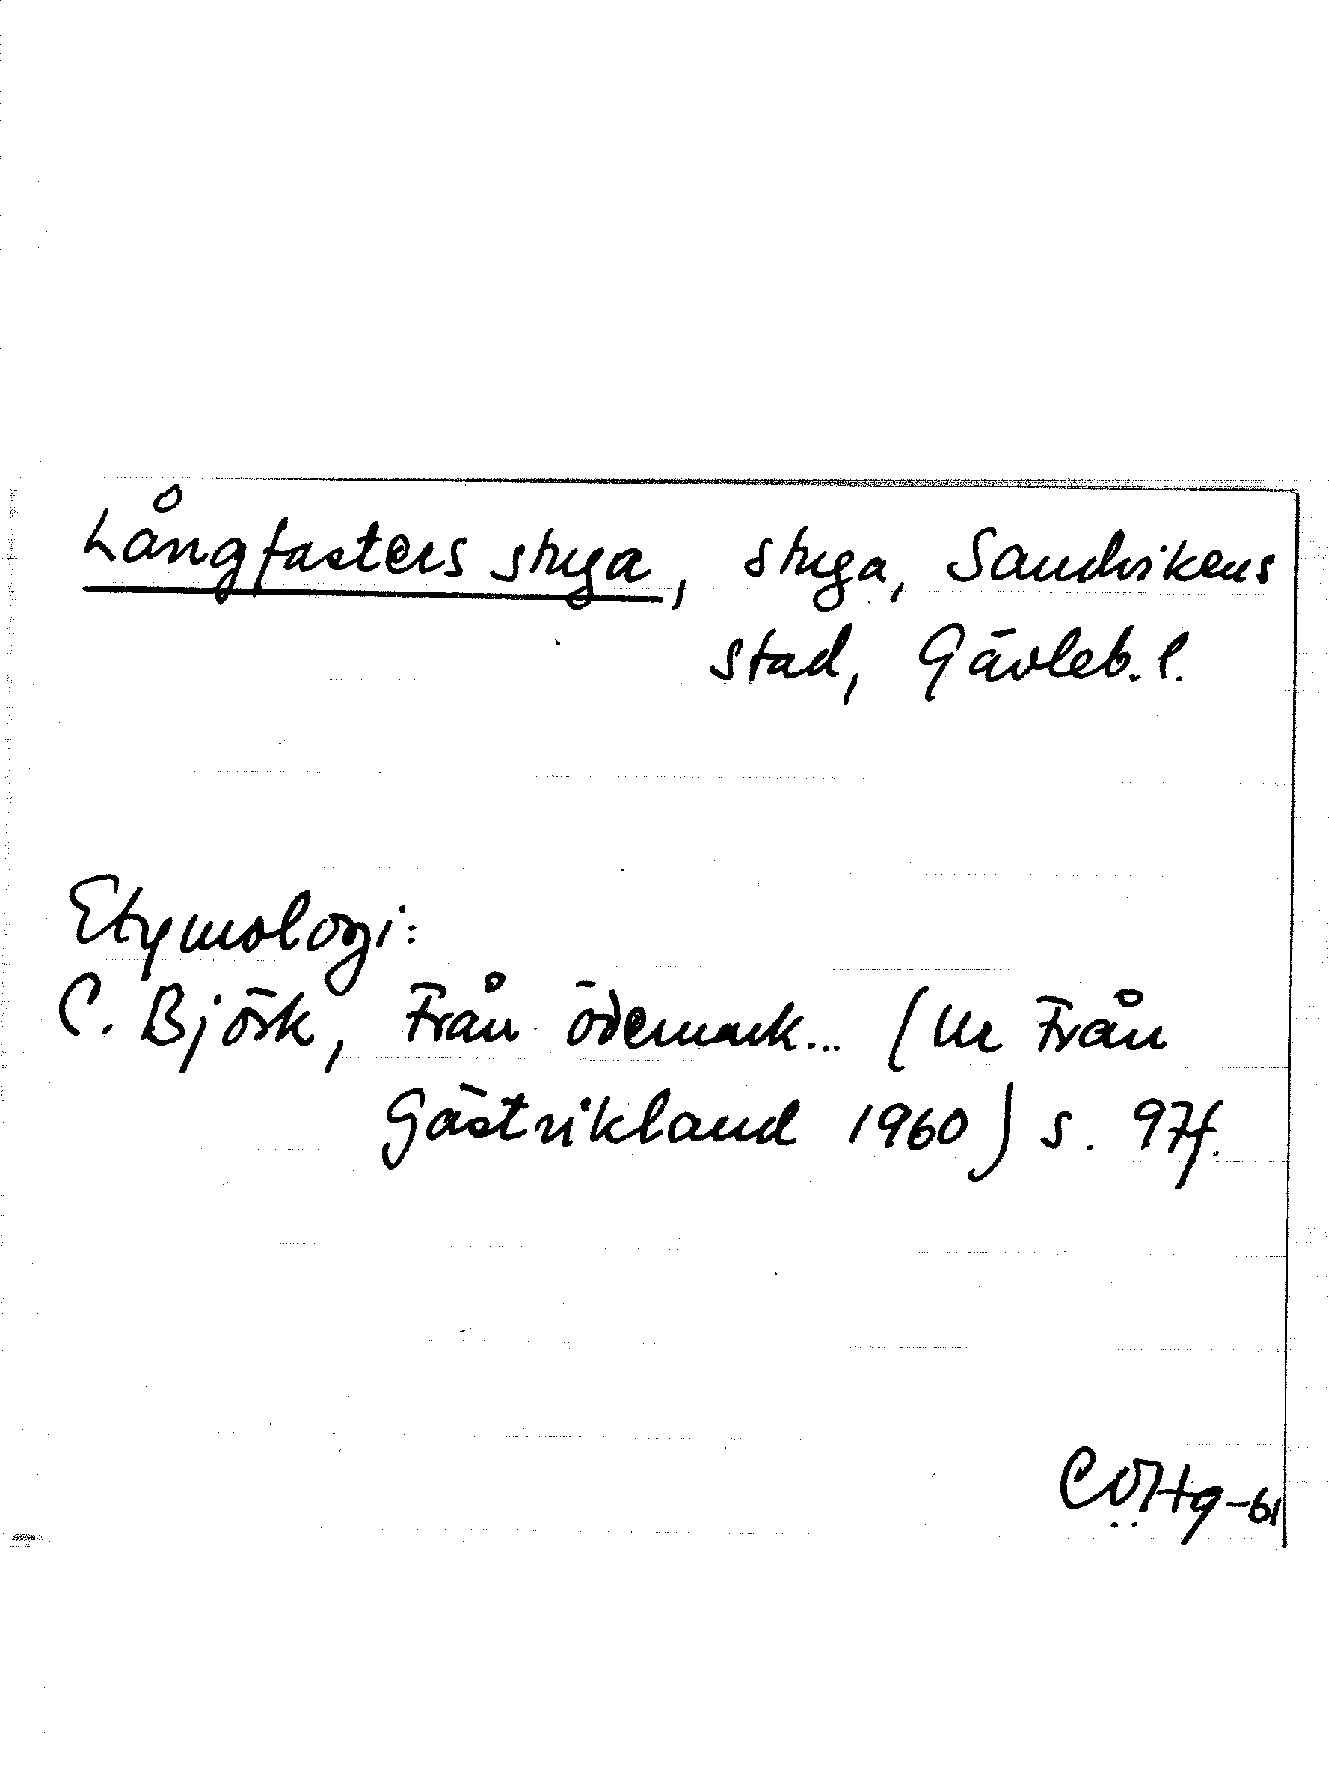 Långfasters stuga, stuga, Sandvikens
stad, Gävleb. l.
Etymologi:
C. Björk, Från ödemark... (Ur Från
Gästrikland 1960) s. 97f.
CÖHg-61